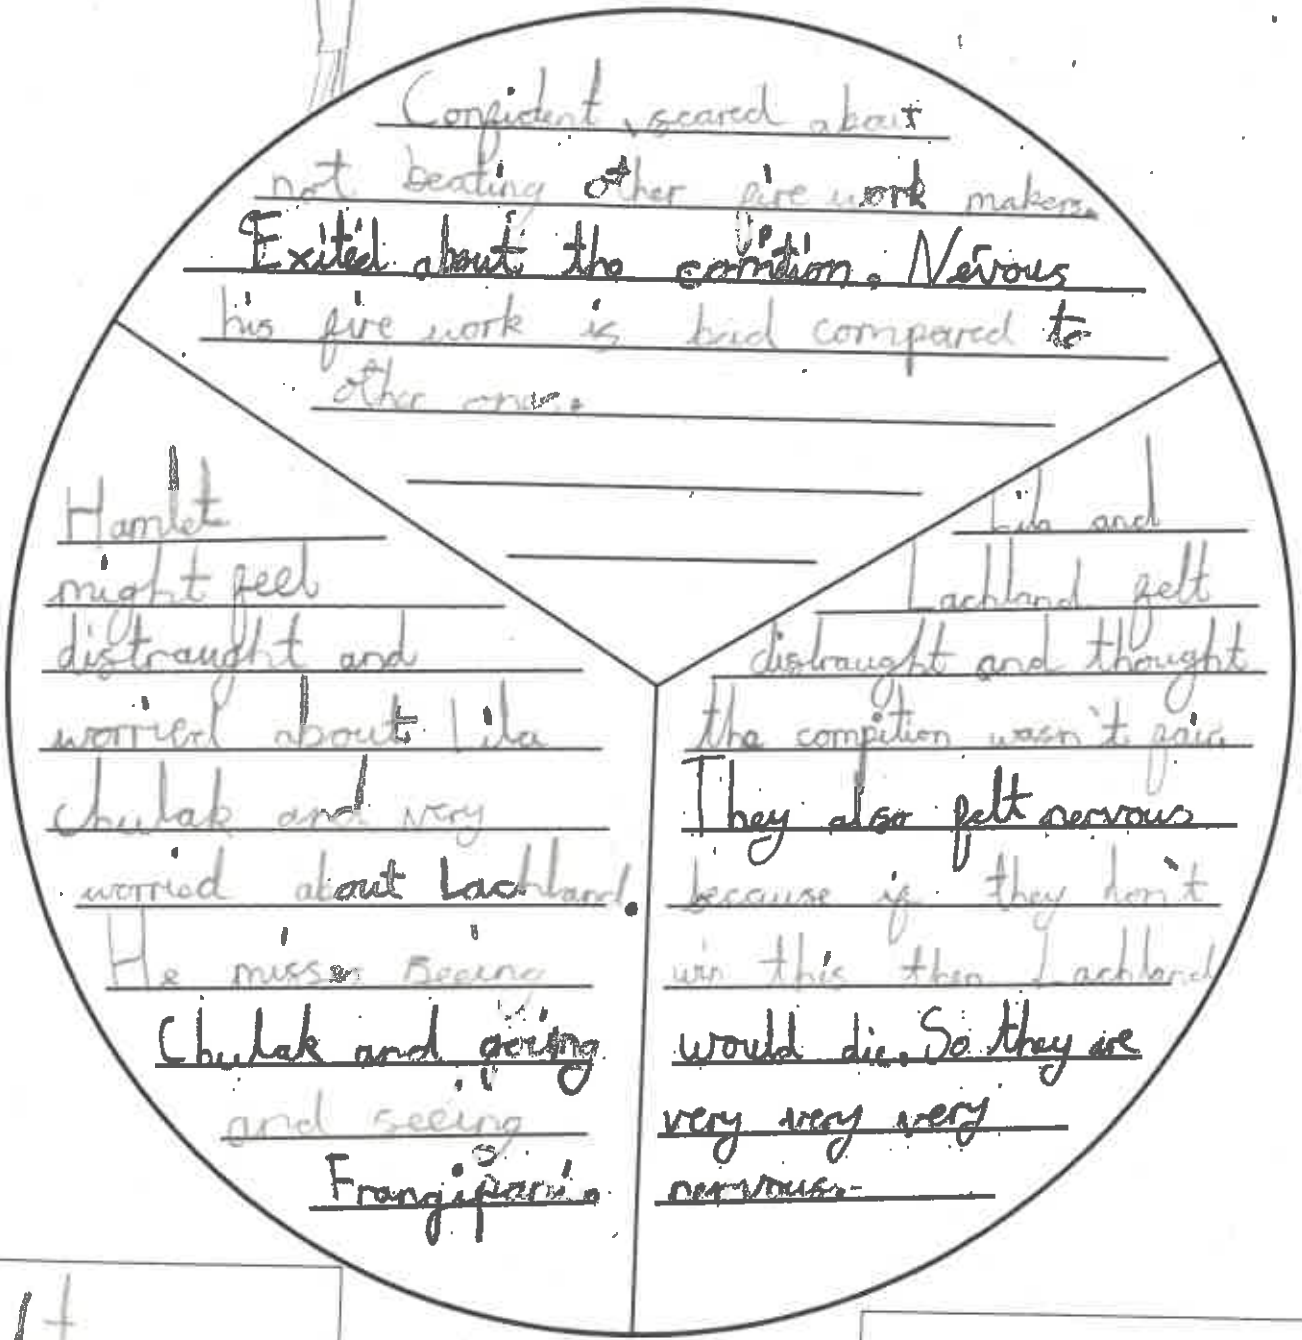 Confident, scared about
not beating other fire work makers.
Exited about the comition. Nervous
his fire work is bad compared to
other ones.
Hamlet
might feel
distraught and
worried about Lila
Chulak and very
worried about Lachland.
He misses seeing
Chulak and going
and seeing
Frangipani.
Lila and
Lachland felt
distraught and thought
the compition wasn't fair.
They also felt nervous
because if they don't
win this then Lachland
would die. So they are
very very very
nervous.